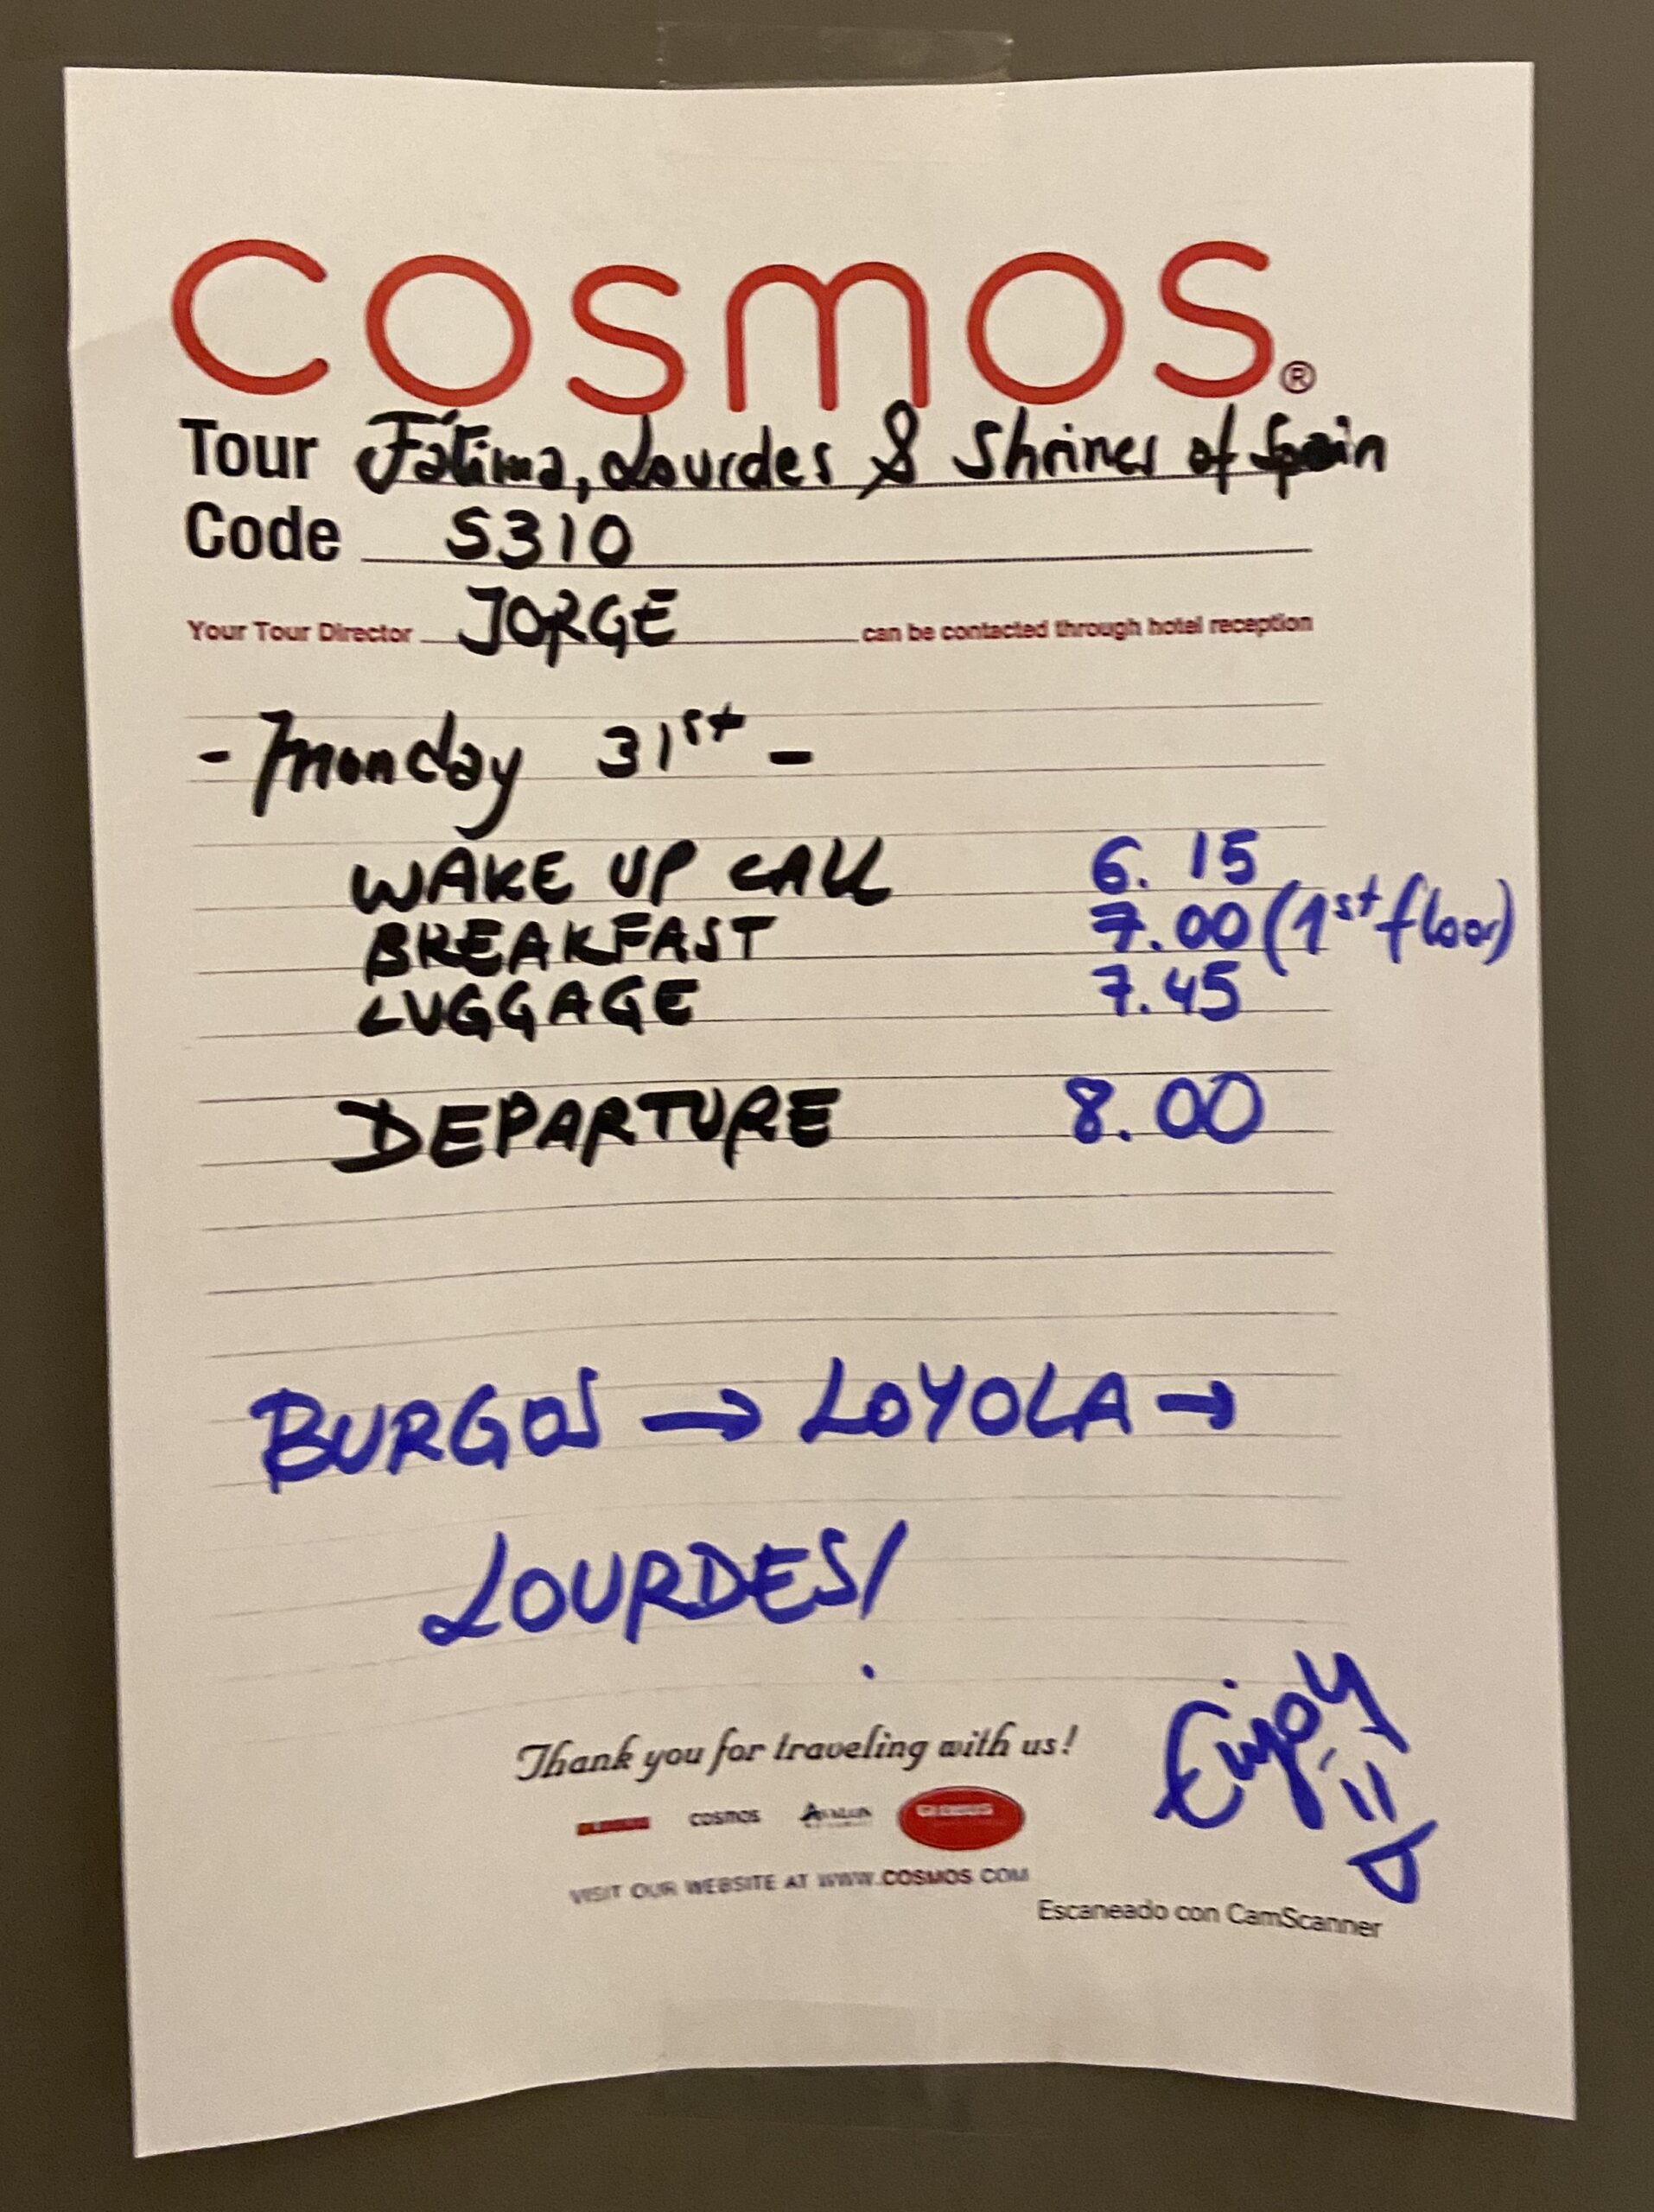 COSMOS®
Tour Fátima, Lourdes & Shrines of Spain
Code S310
Your Tour Director JORGE can be contacted through hotel reception
- Monday 31st -
WAKE UP CALL 6.15
BREAKFAST 7.00 (1st floor)
LUGGAGE 7.45
DEPARTURE 8.00
BURGOS → LOYOLA →
LOURDES!
Enjoy
Thank you for traveling with us!
COSMOS AVALON
VISIT OUR WEBSITE AT WWW.COSMOS.COM
Escaneado con CamScanner